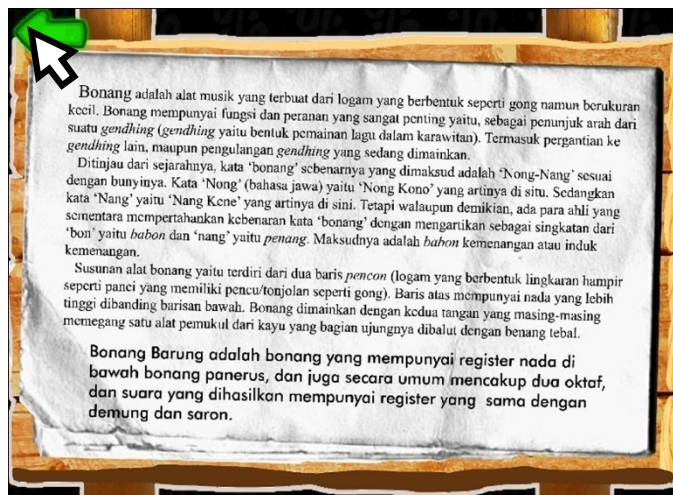 Bonang adalah alat musik yang terbuat dari logam yang berbentuk seperti gong namun berukuran
kecil. Bonang mempunyai fungsi dan peranan yang sangat penting yaitu, sebagai penunjuk arah dari
suatu gendhing (gendhing yaitu bentuk pemainan lagu dalam karawitan). Termasuk pergantian ke
gendhing lain, maupun pengulangan gendhing yang sedang dimainkan.
Ditinjau dari sejarahnya, kata 'bonang' sebenarnya yang dimaksud adalah 'Nong-Nang' sesuai
dengan bunyinya. Kata 'Nong' (bahasa jawa) yaitu 'Nong Kono' yang artinya di situ. Sedangkan
kata 'Nang' yaitu 'Nang Kene' yang artinya di sini. Tetapi walaupun demikian, ada para ahli yang
sementara mempertahankan kebenaran kata 'bonang' dengan mengartikan sebagai singkatan dari
'bon' yaitu babon dan 'nang' yaitu penang. Maksudnya adalah babon kemenangan atau induk
kemenangan.
Susunan alat bonang yaitu terdiri dari dua baris pencon (logam yang berbentuk lingkaran hampir
seperti panci yang memiliki pencu/tonjolan seperti gong). Baris atas mempunyai nada yang lebih
tinggi dibanding barisan bawah. Bonang dimainkan dengan kedua tangan yang masing-masing
memegang satu alat pemukul dari kayu yang bagian ujungnya dibalut dengan benang tebal.
Bonang Barung adalah bonang yang mempunyai register nada di
bawah bonang panerus, dan juga secara umum mencakup dua oktaf,
dan suara yang dihasilkan mempunyai register yang sama dengan
demung dan saron.